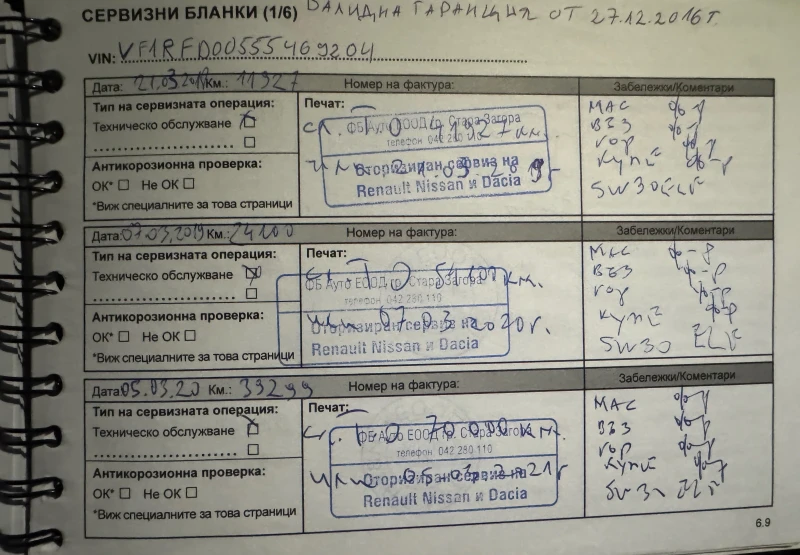 СЕРВИЗНИ БЛАНКИ (1/6) ВАЛИДНА ГАРАНЦИЯ ОТ 27.12.2016 г.
VIN: VF1RFD00555469204
Дата: 21.03.2018 Км.: 11927 Номер на фактура: Забележки/Коментари
Тип на сервизната операция: Печат:
Техническо обслужване
Антикорозионна проверка:
ОК* Не ОК
*Виж специалните за това страници
ФБ Ауто ЕООД гр. Стара Загора
телефон 042 280 110
Оторизиран сервиз на
Renault Nissan и Dacia
МАС ф-р
ВЪЗ ф-р
гор ф-р
купе ф-р
5W30 ELF
Дата: 07.03.2019 Км.: 24100 Номер на фактура: Забележки/Коментари
Тип на сервизната операция: Печат:
Техническо обслужване
Антикорозионна проверка:
ОК* Не ОК
*Виж специалните за това страници
ФБ Ауто ЕООД гр. Стара Загора
телефон 042 280 110
07.03.2020г.
Оторизиран сервиз на
Renault Nissan и Dacia
МАС ф-р
ВЪЗ ф-р
гор ф-р
купе ф-р
5W30 ELF
Дата: 05.03.20 Км.: 33299 Номер на фактура: Забележки/Коментари
Тип на сервизната операция: Печат:
Техническо обслужване
Антикорозионна проверка:
ОК* Не ОК
*Виж специалните за това страници
ФБ Ауто ЕООД гр. Стара Загора
телефон 042 280 110
Оторизиран сервиз на
Renault Nissan и Dacia
МАС ф-р
ВЪЗ ф-р
гор ф-р
купе ф-р
5W30 ELF
6.9